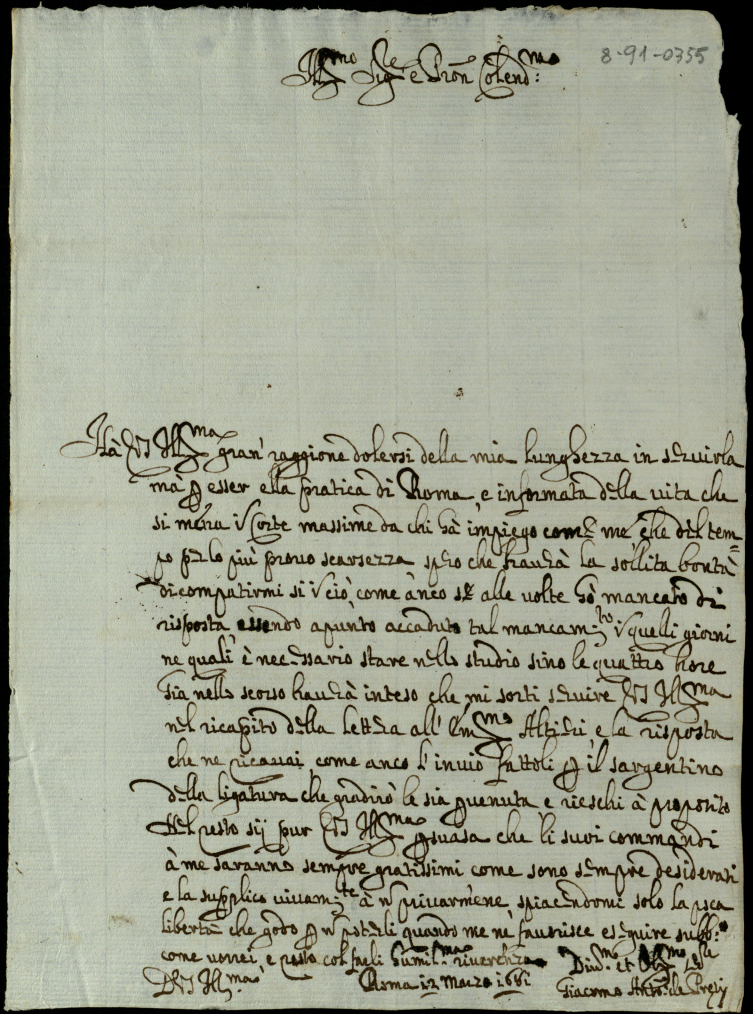 8-91-0355
Ill.mo Sig.re e Pron Colend.mo
Hà VS Ill.ma gran' raggione dolersi della mia lunghezza in seruirla
mà p esser ella pratica di Roma, e informata della vita che
si mena in Corte massime da chi hà impiego come me che del tem=
po per lo più prouo scarsezza spero che haurà la sollita bontà
di compatirmi si in ciò come anco se alle uolte hò mancato di
risposta essendo apunto accaduto tal mancam.to in quelli giorni
ne quali è necessario stare nello studio sino le quattro hore
Già nello scorso haurà inteso che mi sorti seruire VS Ill.ma
nel ricapito della lettera all' Em.mo Altieri e la risposta
che ne ricauai, come anco l'inuio fattoli p il sargentino
della ligatura che gradirò le sia puenuta e rieschi à proposito
Nel resto sij pur VS Ill.ma psuasa che li suoi commandi
à me saranno sempre gratissimi come sono sempre desiderati
e la supplico viuam.te à n priuarmene spiacendomi solo la poca
libertà che godo p n poterli quando me ne fauorisce eseguire subb.o
come uorrei, e resto col farli humil.ma riuerenza
D VS Ill.ma
Roma 12 Marzo 1681
Diu.mo et Obl.mo Se.re
Giacomo Ant.o de